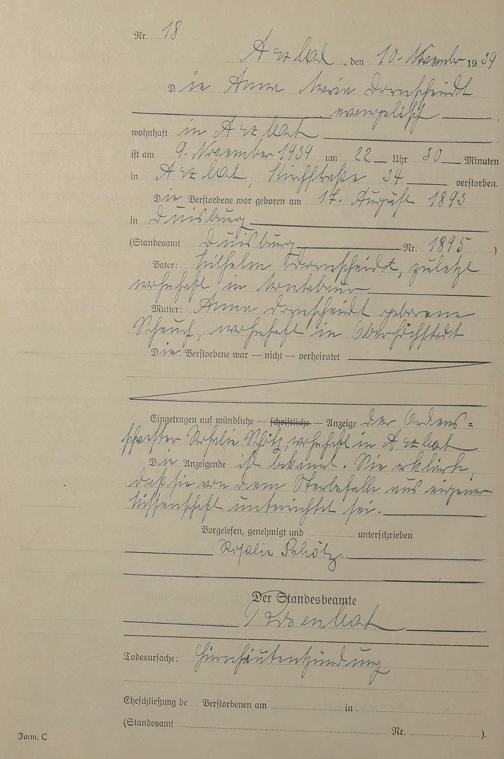 Nr. 18
Arzbach, den 10. November 1939
Die Anna Maria Dornscheidt
evangelisch
wohnhaft in Arzbach
ist am 9. November 1939 um 22 Uhr 30 Minuten
in Arzbach, Kirchstraße 34 verstorben.
Die Verstorbene war geboren am 17. August 1893
in Duisburg
(Standesamt Duisburg Nr. 1895)
Vater: Wilhelm Dornscheidt, zuletzt
wohnhaft in Montabaur
Mutter: Anna Dornscheidt geborene
Scheuch, wohnhaft in
Die Verstorbene war — nicht — verheiratet
Eingetragen auf mündliche — schriftliche — Anzeige der Ordens=
schwester Rosalie Schötz, wohnhaft in Arzbach
Die Anzeigende ist bekannt. Sie erklärte,
daß sie von dem Sterbefalle aus eigener
Wissenschaft unterrichtet sei.
Vorgelesen, genehmigt und unterschrieben
Rosalie Schötz
Der Standesbeamte
Todesursache: Hirnhautentzündung
Eheschließung de Verstorbenen am in
(Standesamt Nr. ).
Form. C